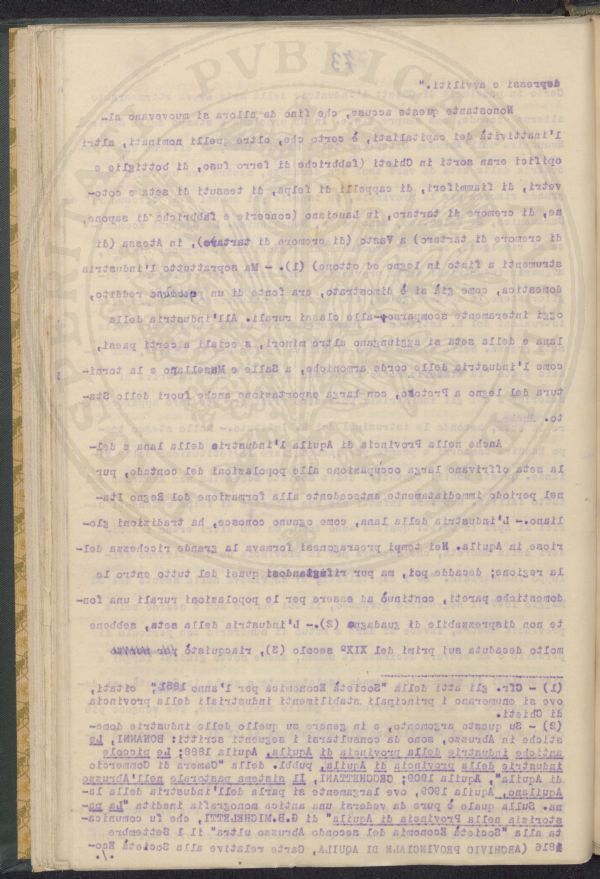 43
depressi e avviliti."
Nonostante queste accuse, che fino da allora si muovevano al-
l'inattività dei capitalisti, è certo che, oltre quelli nominati, altri
opifici eran sorti in Chieti (fabbriche di ferro fuso, di bottiglie e
vetri, di fiammiferi, di cappelli di felpa, di tessuti di seta e coto-
ne, di cremore di tartaro, in Lanciano (concerie e fabbriche di sapone,
di cremore di tartaro) a Vasto (di cremore di tartaro), in Atessa (di
strumenti a fiato in legno ed ottone) (1).- Ma soprattutto l'industria
domestica, come già si è dimostrato, era fonte di un reddito,
oggi interamente scomparso, alle classi rurali. All'industria della
lana e della seta si aggiungano altre minori, speciali a certi paesi,
come l'industria delle corde armoniche, a Salle e Musellaro e la torni-
tura del legno a Pretoro, con larga esportazione anche fuori dello Sta-
to.
Anche nella Provincia di Aquila l'industrie della lana e del-
la seta offrivano larga occupazione alle popolazioni del contado, pur
nel periodo immediatamente antecedente alla formazione del Regno Ita-
liano.- L'industria della lana, come ognuno conosce, ha tradizioni glo-
riose in Aquila. Nei tempi prearagonesi formava la grande ricchezza del-
la regione; decadde poi, ma pur rifugiandosi quasi del tutto entro le
domestiche pareti, continuò ad essere per le popolazioni rurali una fon-
te non disprezzabile di guadagno (2).- L'industria della seta, sebbene
molto decaduta sui primi del XIXº secolo (3), riacquistò
(1) - Cfr. gli atti della "Società Economica per l'anno 1851", citati,
ove si enumerano i principali stabilimenti industriali della provincia
di Chieti.
(2) - Su questo argomento, e in genere su quello delle industrie dome-
stiche in Abruzzo, sono da consultarsi i seguenti scritti: BONANNI, Le
antiche industrie della provincia di Aquila, Aquila 1888; Le piccole
industrie della provincia di Aquila, pubbl. della "Camera di Commercio
di Aquila", Aquila 1909; CROCCHETTANI, Il sistema pastorale nell'Abruzzo
Aquilano, Aquila 1909, ove largamente si parla dell'industria della la-
na. Sulla quale è pure da vedersi una antica monografia inedita "La pa-
storizia nella Provincia di Aquila" di G.B.MICHELETTI, che fu comunica-
ta alla "Società Economia del secondo Abruzzo ultra" il 1 Settembre
1816 (ARCHIVIO PROVINCIALE DI AQUILA, Carte relative alla Società Eco-
./.